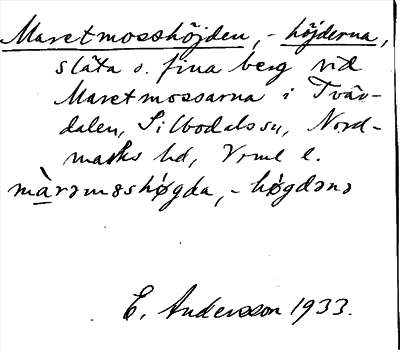 Maretmosshöjden, - höjderna,
släta o. fina berg vid
Maretmossarna i Tvär-
dalen, Silbodals sn, Nord-
marks hd, Vrml l.
màrəmɷshǿgda, - hǿgdənə
E. Andersson 1933.